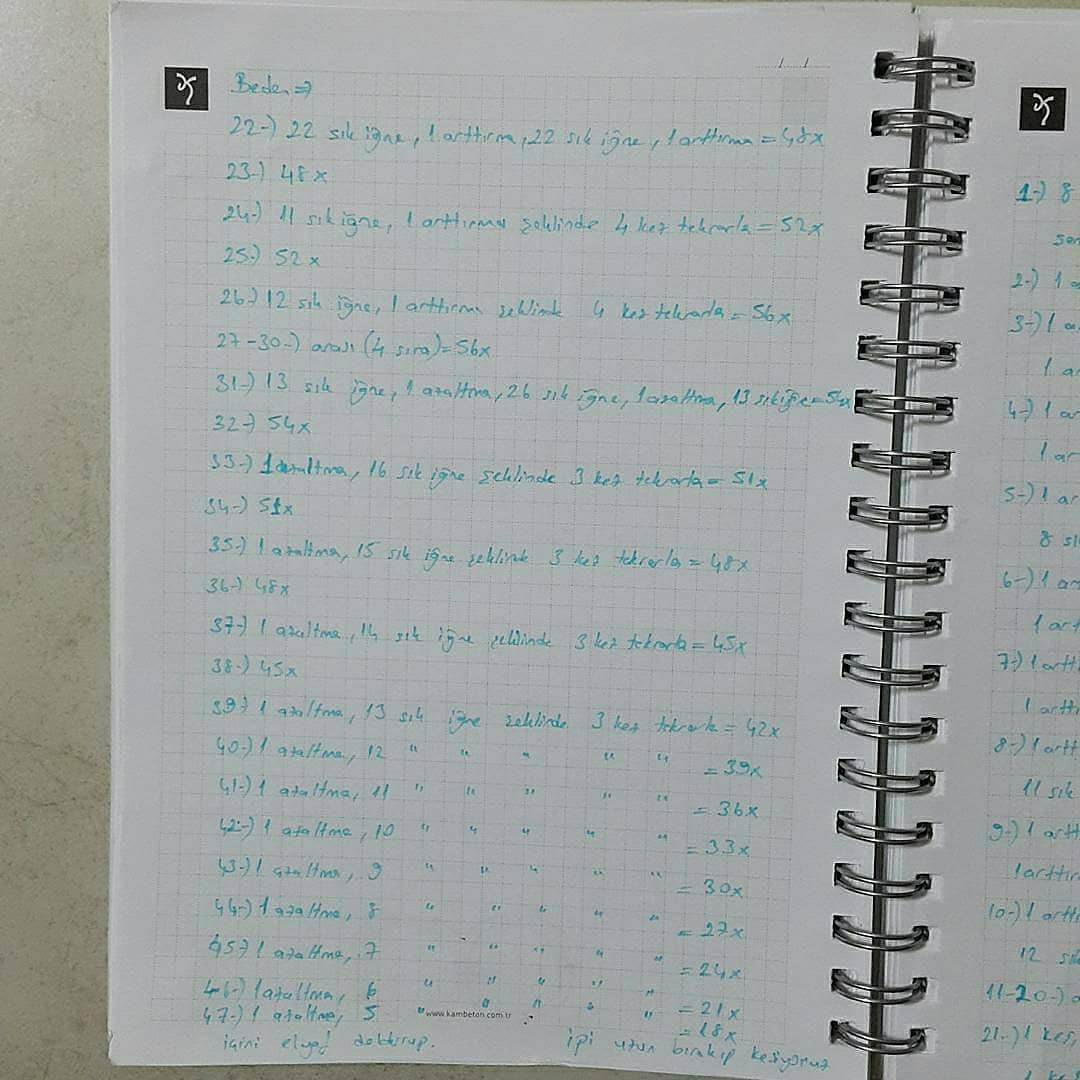 Beden ⇒
22-) 22 sık iğne, 1 arttırma, 22 sık iğne, 1 arttırma = 48x
23-) 48x
24-) 11 sık iğne, 1 arttırma şeklinde 4 kez tekrarla = 52x
25-) 52x
26-) 12 sık iğne, 1 arttırma şeklinde 4 kez tekrarla = 56x
27-30-) arası (4 sıra) = 56x
31-) 13 sık iğne, 1 azaltma, 26 sık iğne, 1 azaltma, 13 sık iğne = 54x
32-) 54x
33-) 1 azaltma, 16 sık iğne şeklinde 3 kez tekrarla = 51x
34-) 51x
35-) 1 azaltma, 15 sık iğne şeklinde 3 kez tekrarla = 48x
36-) 48x
37-) 1 azaltma, 14 sık iğne şeklinde 3 kez tekrarla = 45x
38-) 45x
39-) 1 azaltma, 13 sık iğne şeklinde 3 kez tekrarla = 42x
40-) 1 azaltma, 12 " " " " " = 39x
41-) 1 azaltma, 11 " " " " " = 36x
42-) 1 azaltma, 10 " " " " " = 33x
43-) 1 azaltma, 9 " " " " " = 30x
44-) 1 azaltma, 8 " " " " " = 27x
45-) 1 azaltma, 7 " " " " " = 24x
46-) 1 azaltma, 6 " " " " " = 21x
47-) 1 azaltma, 5 " " " " " = 18x
www.kambeton.com.tr
içini elyaf doldurup. ipi uzun bırakıp kesiyoruz
1-) 8
2-) 1
3-) 1
1
4-) 1
1 ar
5-) 1 ar
8
6-) 1
1 art
7-) 1 artt
1 artt
8-) 1 artt
11 sık
9-) 1 artt
1 arttır
10-) 1 artt
12
11-20-)
21-) 1